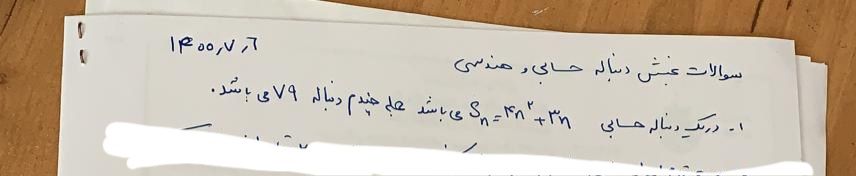 ۱۴۰۰,۷,۶
سوالات بخش دنباله حسابی و هندسی
۱- در یک دنباله حسابی Sₙ=۴n²+۳n می باشد جمله چندم دنباله ۷۹ می باشد.